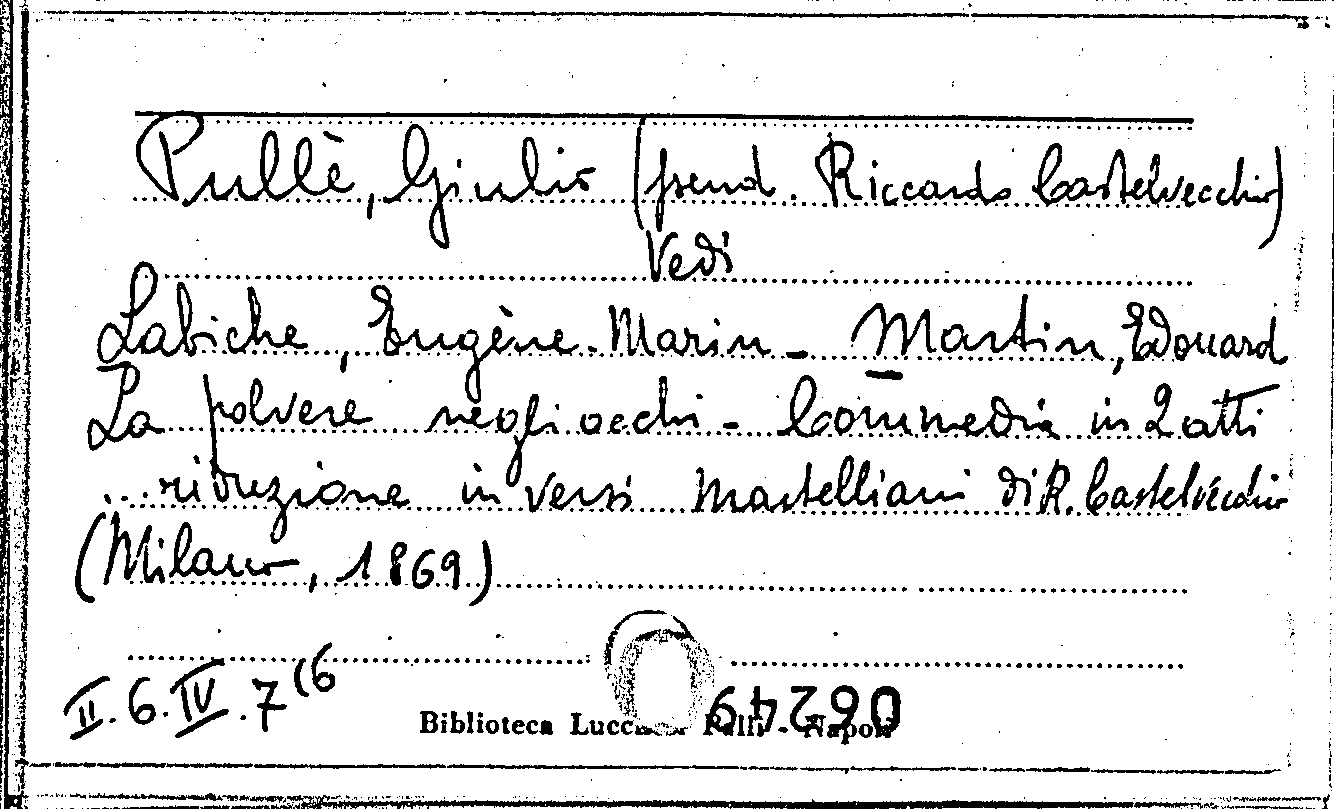 Pullè, Giulio (pseud. Riccardo Castelvecchio)
Vedi
Labiche, Eugène-Marin - Martin, Edouard
La polvere negli occhi - Commedia in 2 atti
... riduzione in versi martelliani di R. Castelvecchio
(Milano, 1869)
II.6.IV.7(6
Biblioteca Lucchesi Palli - Napoli